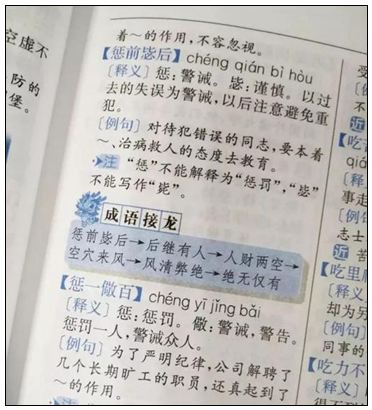 空虚不
防的
堡。
着～的作用，不容忽视。
【惩前毖后】chéng qián bì hòu
〔释义〕惩：警诫。毖：谨慎。以过
去的失误为警诫，以后注意避免重
犯。
〔例句〕对待犯错误的同志，要本着
～、治病救人的态度去教育。
注 “惩”不能解释为“惩罚”，“毖”
不能写作“毙”。
成语接龙
惩前毖后→后继有人→人财两空→
空穴来风→风清弊绝→绝无仅有
【惩一儆百】chéng yī jǐng bǎi
〔释义〕惩：惩罚。儆：警诫，警告。
惩罚一人，警诫众人。
〔例句〕为了严明纪律，公司解聘了
几个长期旷工的职员，还真起到了
～的作用。
不
近
〔释
事走
〔例
志士
近 苦
【吃里
却为另
〔例句
同事的
【吃力不